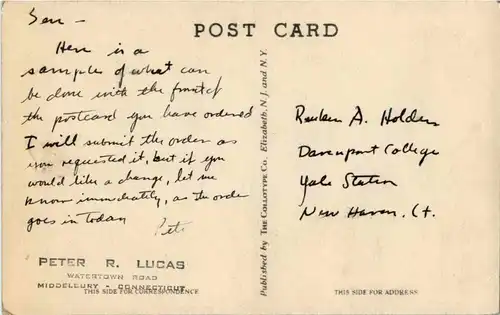 POST CARD
Sen —
Here is a
sample of what can
be done with the front of
the postcard you have ordered
I will submit the order as
you requested it, but if you
would like a change, let me
know immediately, as the order
goes in today
Pete
PETER R. LUCAS
WATERTOWN ROAD
MIDDLEBURY - CONNECTICUT
THIS SIDE FOR CORRESPONDENCE
Published by THE COLLOTYPE CO., Elizabeth, N. J. and N. Y.
Reuben A. Holden
Davenport College
Yale Station
New Haven. Ct.
THIS SIDE FOR ADDRESS